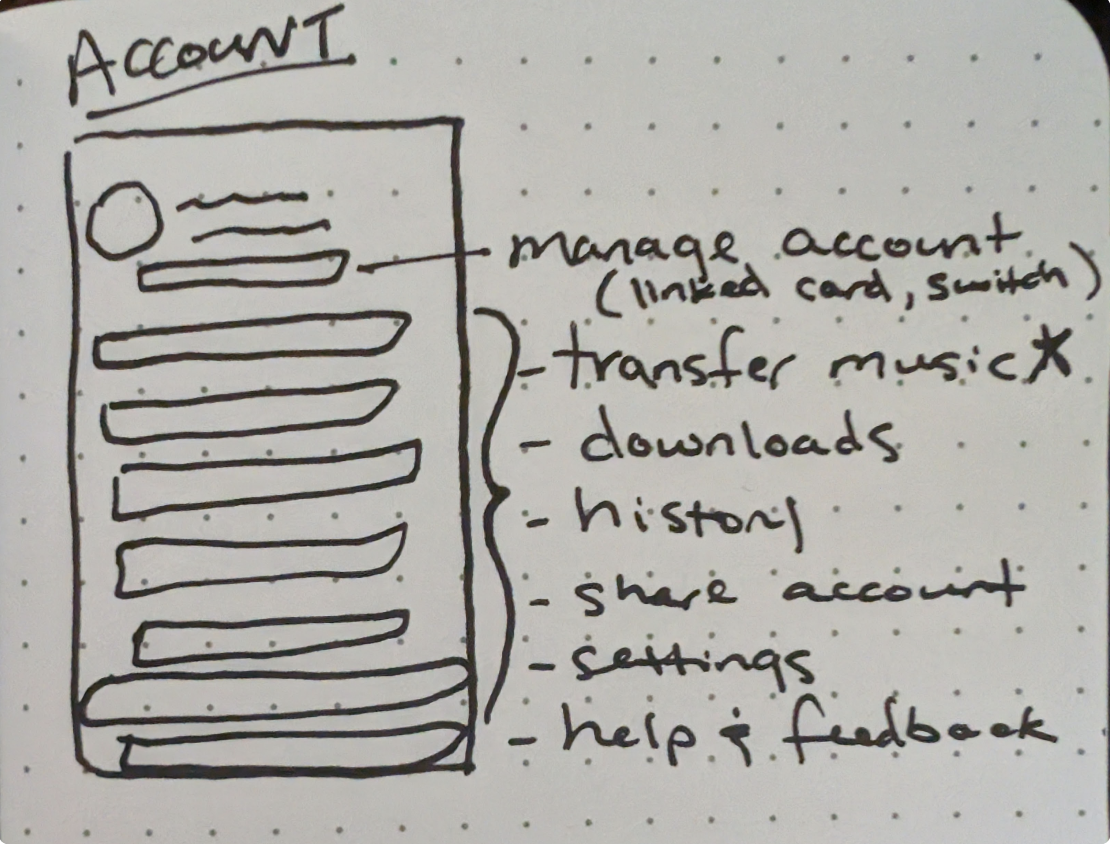 ACCOUNT
manage account
(linked card, switch)
- transfer music*
- downloads
- history
- share account
- settings
- help & feedback